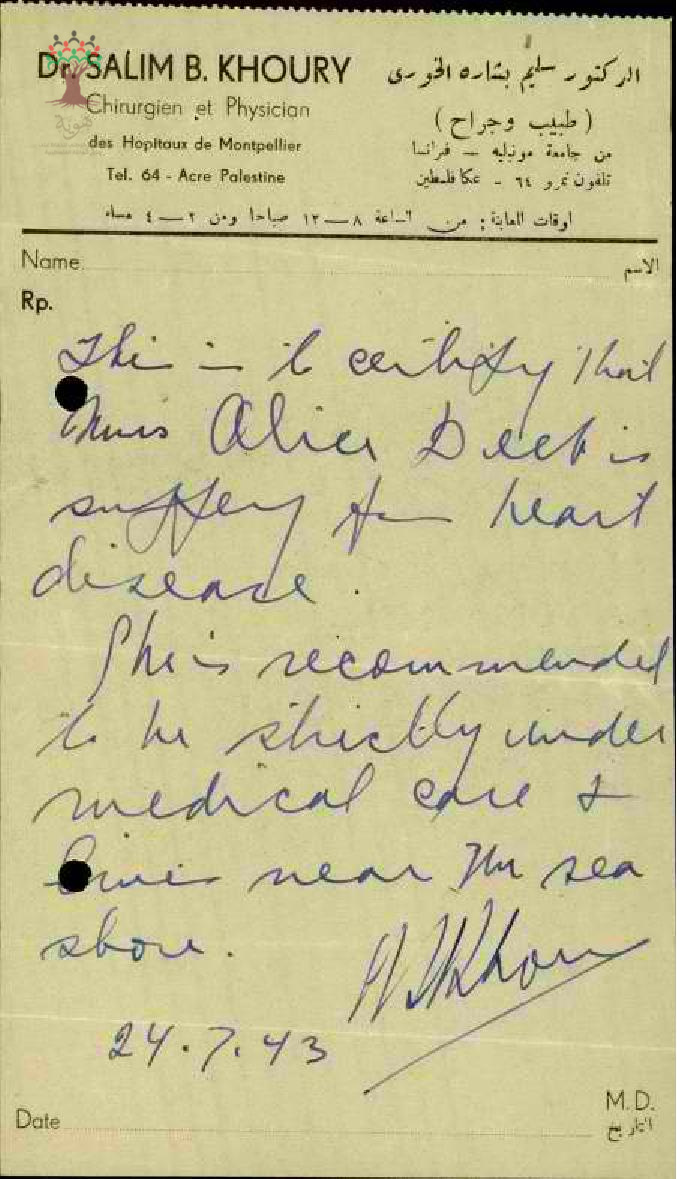 Dr. SALIM B. KHOURY
Chirurgien et Physician
des Hopitaux de Montpellier
Tel. 64 - Acre Palestine
الدكتور سليم بشاره الخوري
(طبيب وجراح)
من جامعة مونبليه — فرانسا
تلفون نمرو ٦٤ - عكا فلسطين
اوقات المعاينة: من الساعة ٨ — ١٢ صباحا ومن ٢ — ٤ مساء
Name الاسم
Rp.
This is to certify that
Miss Alice Deeb is
suffering from heart
disease.
She is recommended
to be strictly under
medical care &
lives near the sea
shore.
Khoury
24.7.43
M.D.
Date التاريخ